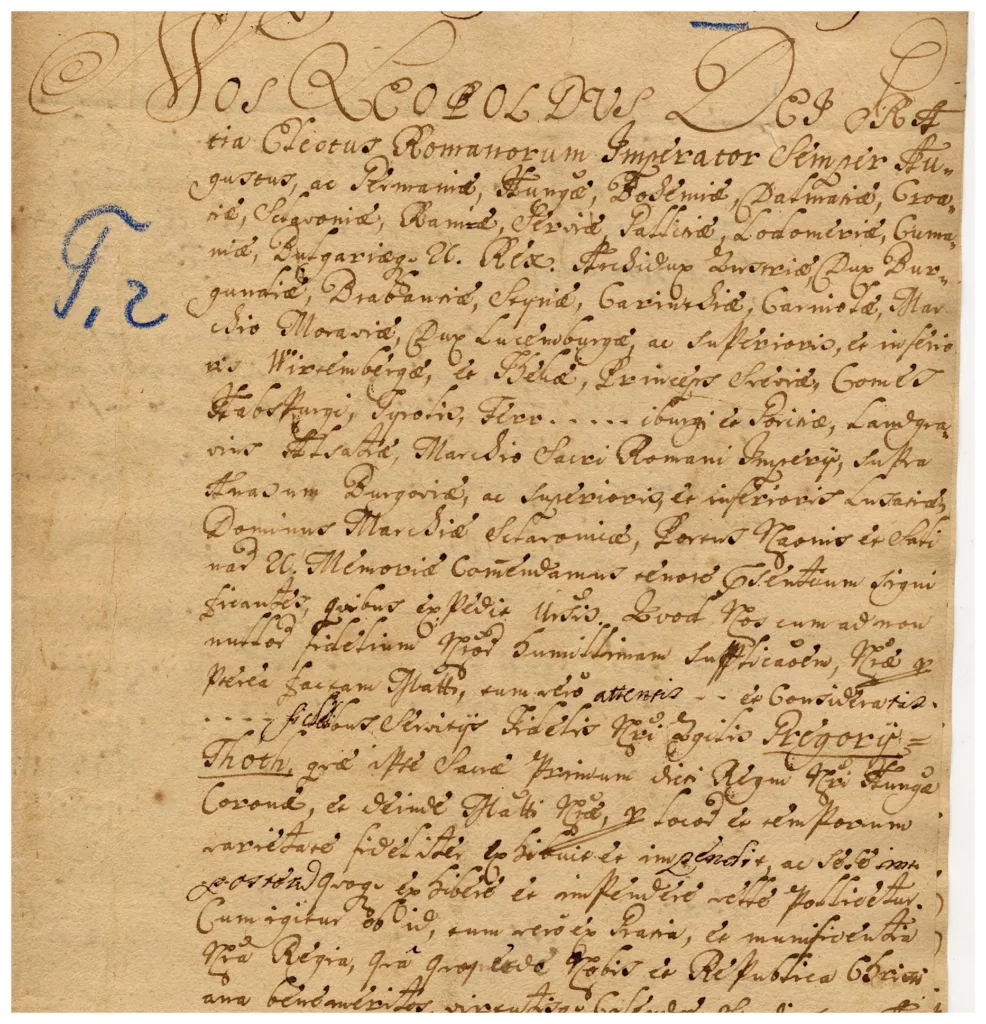 Nos Leopoldus Dei Gra
tia Electus Romanorum Imperator Semper Au-
gustus, ac Germaniæ, Hungæ, Bohemiæ, Dalmatiæ, Croa-
tiæ, Sclavoniæ, Ramæ, Serviæ, Galliciæ, Lodomeriæ, Cuma-
niæ, Bulgariæq. &. Rex. Archidux Austriæ, Dux Bur-
gundiæ, Brabantiæ, Styriæ, Carinthiæ, Carniolæ, Mar
chio Moraviæ, Dux Lucemburgæ, ac superioris, et inferio
ris Wirtembergæ, et Thekæ, Princeps Sveviæ, Comes
Habspurgi, Tyrolis, Ferr ..... iburgi et Goritiæ, Landgra-
vius Alsatiæ, Marchio Sacri Romani Imperij, supra
Anasum Burgoviæ, ac superioris, et inferioris Lusatiæ,
Dominus Marchiæ Sclavonicæ, Portus Naonis et Sali
nar &. Memoriæ Comendamus tenore signi
ficantes, quibus expedit Quod Nos cum ad non
nullor fidelium Nror humillimam supplicaoem, Nræ
pterea factam Matti, tum vero attentis - - et Consideratis.
.... fidelibus Servitijs Fidelis Nri Egilis Gregorij =
Thoth, quæ ipse Sacræ Primum dicti Regni Nri Hungæ
Coronæ, et deinde Matti Nræ, p locor et temporum
varietate fideliter exhibuit et impendit, ac sese im
posterū quoq exhibere et impendere velle Pollicetur.
Cum igitur ob id, tum vero ex Gratia, et munificentia
Nra Regia, quâ quospede Nobis et Republica Christi
ana benemeritos,